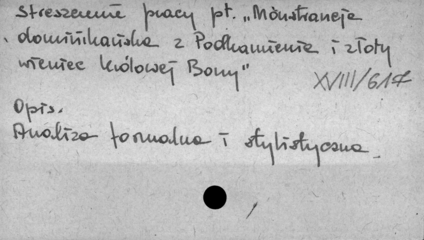 streszczenie pracy pt. „Monstrancja
dominikańska z Podkamienia i złoty
wieniec królowej Bony"
XVIII/617
Opis.
Analiza formalna i stylistyczna.